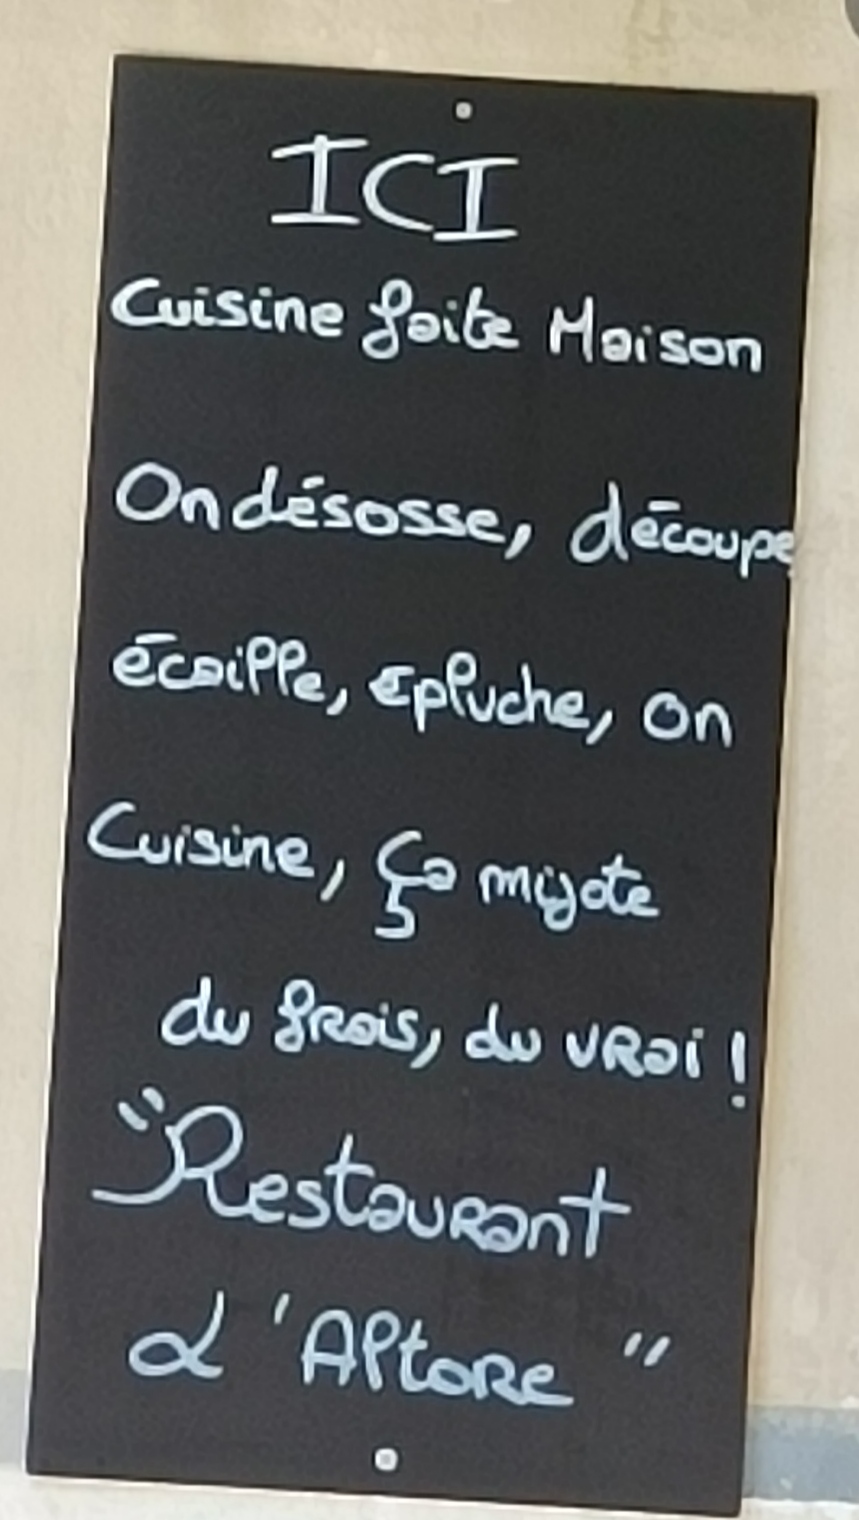 ICI
Cuisine faite Maison
On désosse, découpe
écaille, épluche, on
Cuisine, ça mijote
du frais, du vrai !
"Restaurant
d'Altore "